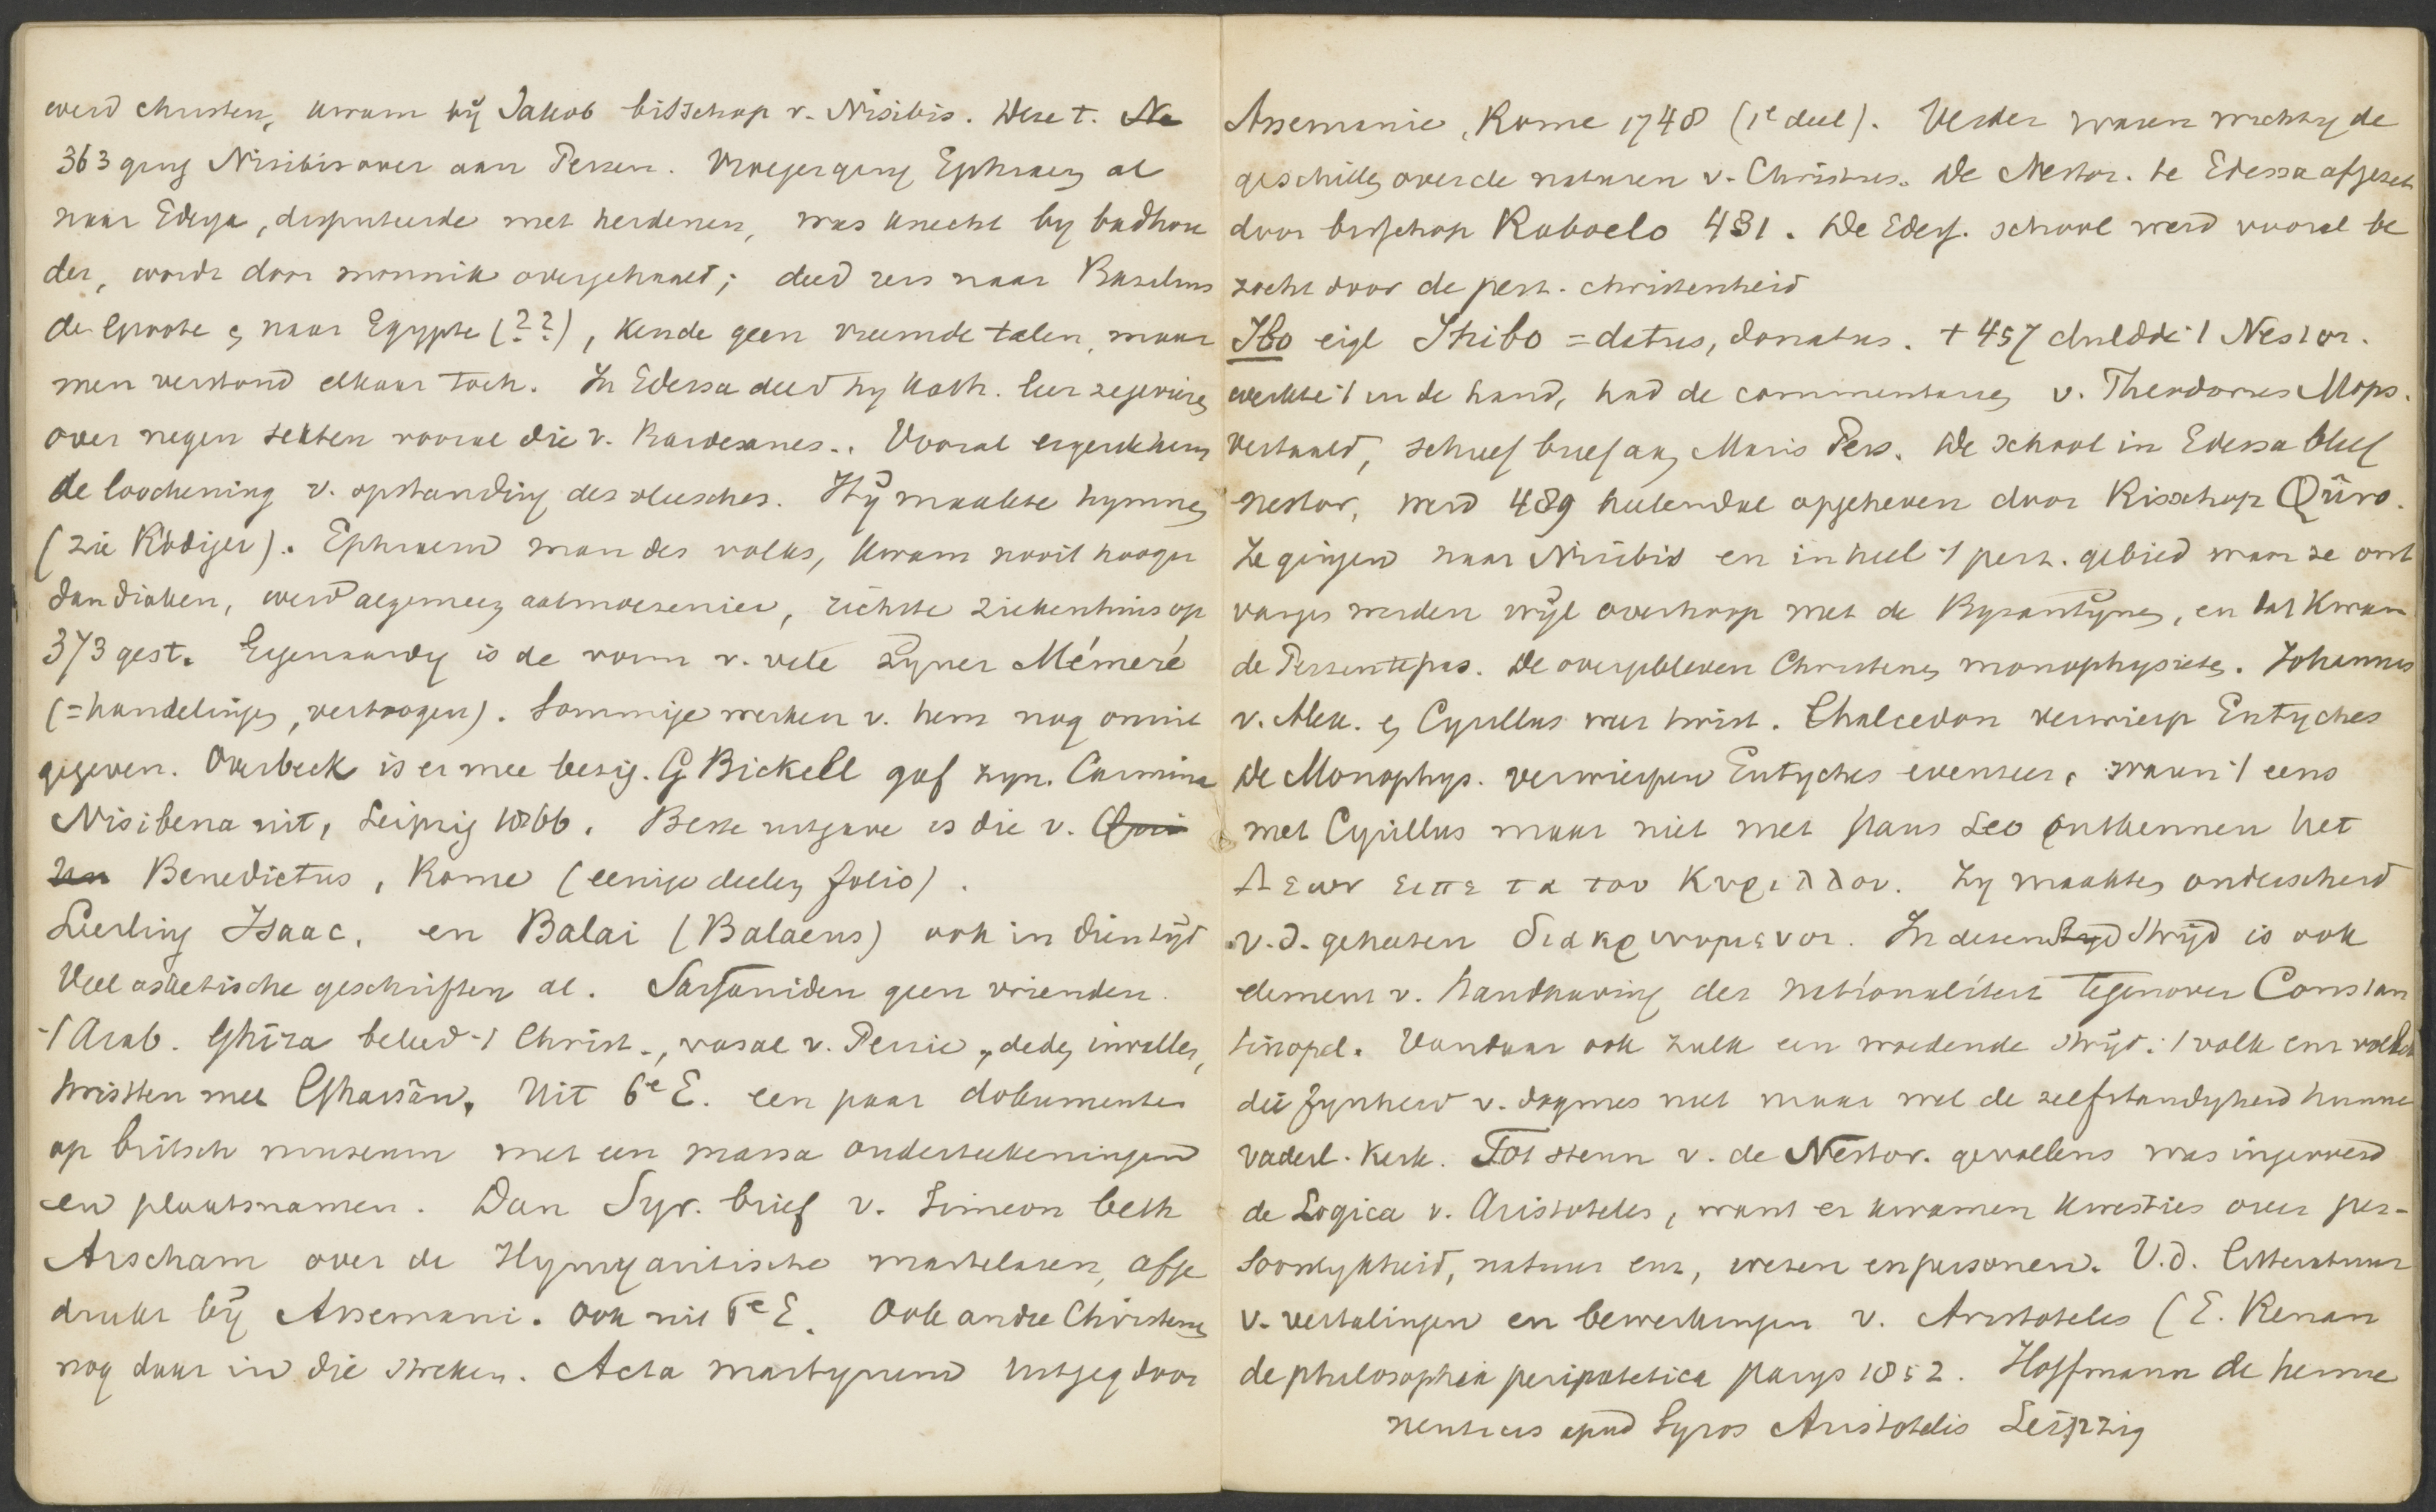 werd christen, kwam bij Jakob bisschop v. Nisibis. Deze t. Na
363 ging Nisibis over aan Perzen. Vroeger ging Ephraem al
naar Edessa, disputeerde met heidenen, was knecht by badhou
der, wordt door monnik overgehaald; deed reis naar Basilius
de Groote en naar Egypte (??), kende geen vreemde talen, maar
men verstond elkaar toch. In Edessa deed hy kath. leer zegevieren
over negen sekten vooral die v. Bardesanes. Vooral ergerde hem
de loochening v. opstanding des vleesches. Hij maakte hymnen
(zie Rödiger). Ephraem man des volks, kwam nooit hooger
dan diaken, werd algemeen aalmoesenier, richtte ziekenhuis op
373 gest. Eigenaardig is de vorm v. vele zyner Mémeré
(= handelingen, vertoogen). Sommige werken v. hem nog onuit
gegeven. Overbeck is er mee bezig. G Bickell gaf zyn. Carmina
Nisibena uit, Leipzig 1866. Beste uitgave is die v. Qui
Benedictus, Rome (eenige deelen folio).
Leerling Isaac, en Balai (Balaeus) ook in dien tijd
Veel asketische geschriften al. Sassaniden geen vrienden.
-/ Arab. Ghiza beleed -/ Christ., vasal v. Perzie, deden invallen,
twistten met Ghassân. Uit 6e E. een paar dokumenten
op britsch museum met een massa onderteekeningen
en plaatsnamen. Dan Syr. brief v. Simeon beth
Arscham over de Hymyaritische martelaren, afge
drukt bij Assemani. Ook uit 6e E. Ook andre Christenen
nog daar in die streken. Acta martyrum uitgeg door
Assemanie, Rome 1748 (1e deel). Verder waren wichtig de
geschillen over de naturen v. Christus. De Nestor. te Edessa afgezet
door bisschop Raboelo 431. De Edess. school werd vooral be
zocht door de perz. christenheid
Ibo eigl Ihibo = datus, donatus. + 457 duldde -/ Nestor.
werkte -/ in de hand, had de commentaren v. Theodorus Mops.
vertaald, schreef brief aan Maris Pers. De school in Edessa bleef
nestor, werd 489 heelendal opgeheven door Bisschop Qûro.
Ze gingen naar Nisibis en in heel -/ perz. gebied waar ze ont
vangen werden wijl overhoop met de Byzantijnen, en dat kwam
de Perzen te pas. De overgebleven Christenen monophysieten. Johannes
v. Alex. en Cyrillus was twist. Chalcedon verwierp Eutyches
de Monophys. verwierpen Eutyches evenzeer, waren -/ eens
met Cyrillus maar niet met paus Leo ontkennen het
Λεων ειπε τα του Κυριλλου. Zy maakten onderscheid
v.d. geheeten διακρινομενοι. In dezen tyd strijd is ook
element v. handhaving der nationaliteit tegenover Constan
tinopel. Vandaar ook zulk een woedende strijd: -/ volk
die fynheid v. dogmes niet maar wel de zelfstandigheid hunne
vaderl. kerk. Tot steun v. de Nestor. gevoelens was ingevoerd
de Logica v. Aristoteles, want er kwamen kwesties over per-
soonlykheid, natuur enz, wezen en personen. V.d. litteratuur
v. vertalingen en bewerkingen v. Aristoteles (E. Renan
de philosophia peripatetica parys 1852. Hoffmann de herme
neuticis apud Syros Aristotelis Leipzig